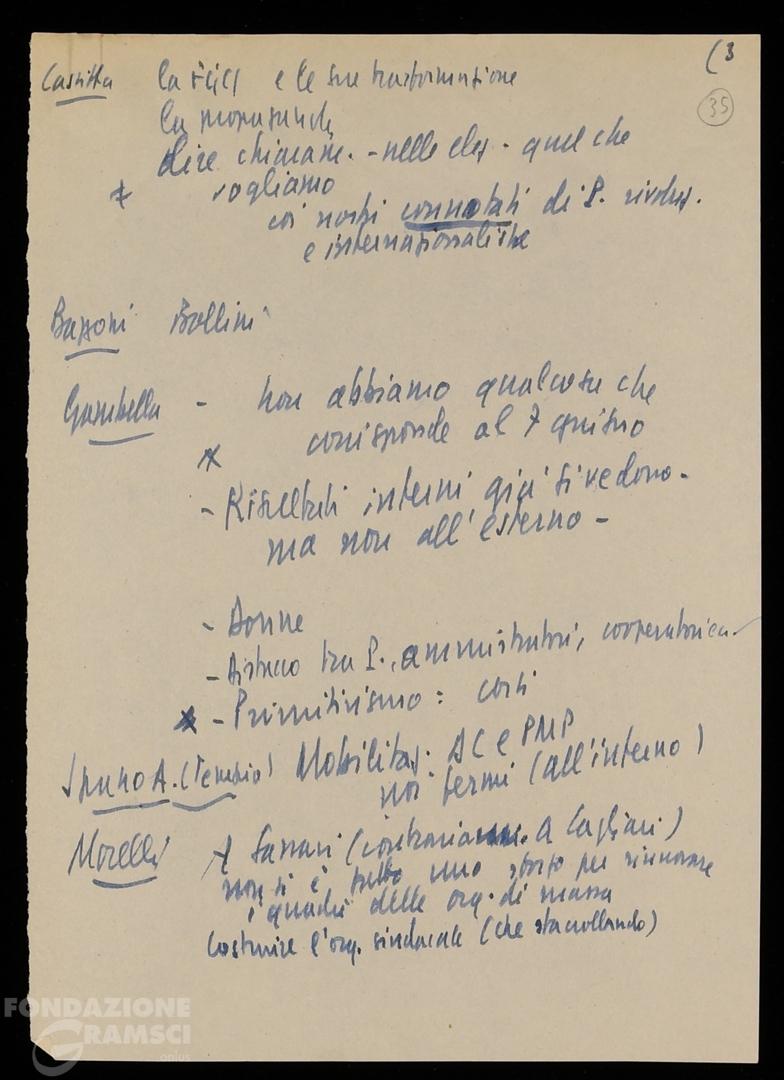 (3
35
Cassitta la FGCI e le sue trasformazione
la propaganda
dire chiaram. - nelle elez. - quel che
vogliamo
coi nostri connotati di P. rivoluz.
e internazionaliste
Bazzoni Bollini
Gambella - non abbiamo qualcosa che
corrisponde al 7 giugno
- Risultati interni già si vedono -
ma non all'esterno -
- Donne
- Distacco tra P., amministratori, cooperatori ecc.
- Primitivismo: costi
A. (Tempio) Mobilitaz. AC e PMP
noi fermi (all'interno)
Morelli A Sassari (contrariam. a Cagliari)
non si è fatto uno sforzo per rinnovare
i quadri delle org. di massa
Costruire l'org. sindacale (che sta crollando)
FONDAZIONE
GRAMSCI
onlus